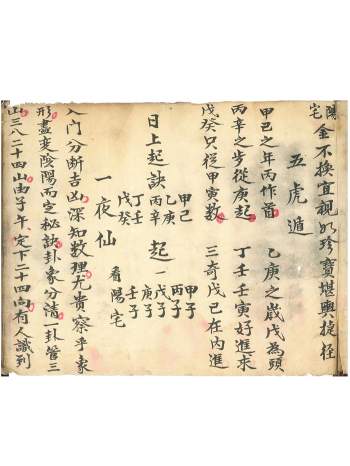 陽宅
金不換宜視如珍寶堪輿捷徑
五虎遁
甲己之年丙作首　乙庚之歲戊為頭
丙辛之步從庚起　丁壬壬寅好進求
戊癸只從甲寅數　三奇戊己在內進
日上起訣
甲己
乙庚
丙辛
丁壬
戊癸
起
甲子
丙子
一戊子
庚子
壬子
一夜仙　看陽宅
入门分断吉凶深知数理尤貴察乎象
形盡变陰陽而定秘訣卦象分清一卦管三
山三八二十四山由子午定下二十四向有人識到